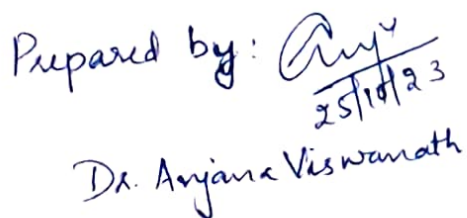 Prepared by: Anju
25/10/23
Dr. Anjana Viswanath